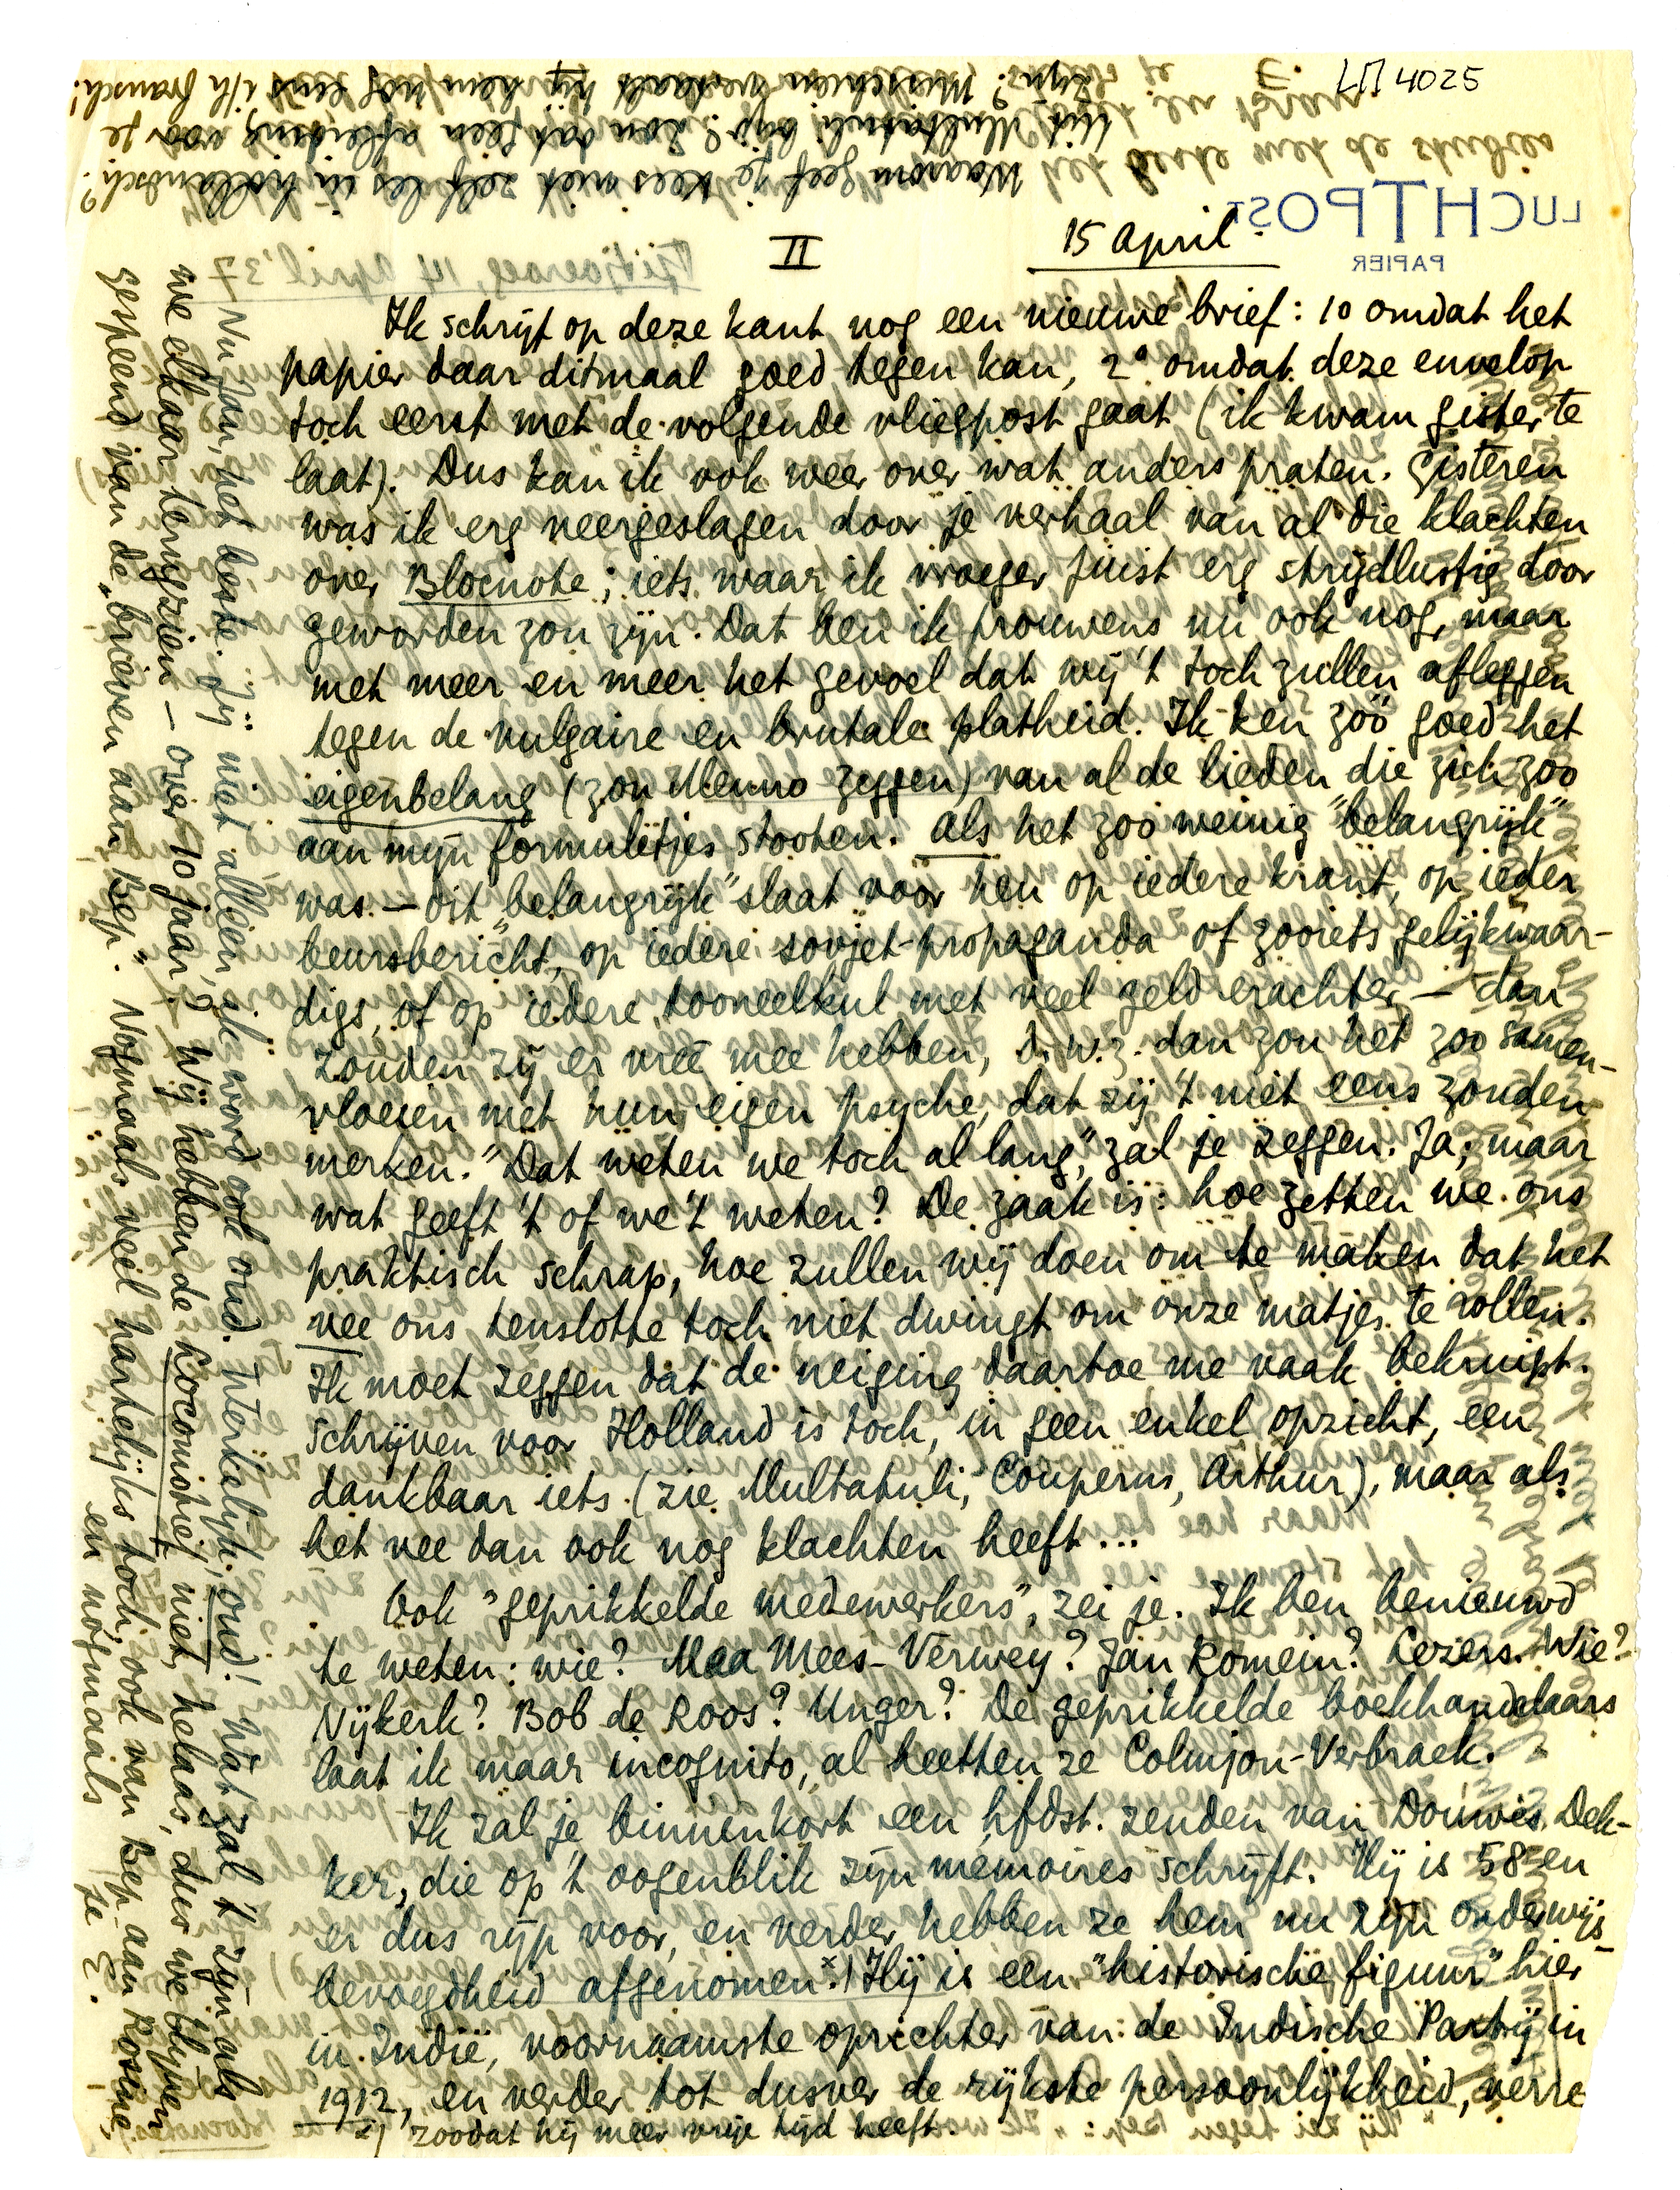 LM 4025
Waarom geef je Kees niet zelf les in hollandsch?
Met Multatuli bijv.? Zou dat geen afleiding voor je
zijn? Misschien vertaalt hij hem nog eens i/h fransch!
Het beste met de studies
E.
LUCHTPOST
PAPIER
Tjitjoeroeg, 14 April '37
II
15 April.
Ik schrijf op deze kant nog een nieuwe brief: 1o omdat het
papier daar ditmaal goed tegen kan, 2° omdat deze envelop
toch eerst met de volgende vliegpost gaat (ik kwam gister te
laat). Dus kan ik ook weer over wat anders praten. Gisteren
was ik erg neergeslagen door je verhaal van al die klachten
over Blocnote; iets waar ik vroeger juist erg strijdlustig door
geworden zou zijn. Dat ben ik trouwens nu ook nog, maar
met meer en meer het gevoel dat wij 't toch zullen afleggen
tegen de vulgaire en brutale platheid. Ik ken zóó goed het
eigenbelang (zou Menno zeggen) van al de lieden die zich zoo
aan mijn formuletjes stooten. Als het zoo weinig "belangrijk"
was — dit "belangrijk" slaat voor hen op iedere krant, op ieder
beursbericht, op iedere sovjet-propaganda of zooiets gelijkwaar-
digs, of op iedere tooneelkul met veel geld erachter — dan
zouden zij er vree mee hebben, d.w.z. dan zou het zoo samen-
vloeien met hun eigen psyche, dat zij 't niet eens zouden
merken. "Dat weten we toch al lang," zal je zeggen. Ja, maar
wat geeft 't of we 't weten? De zaak is: hoe zetten we ons
praktisch schrap, hoe zullen wij doen om te maken dat het
vee ons tenslotte toch niet dwingt om onze matjes te rollen.
Ik moet zeggen dat de neiging daartoe me vaak bekruipt.
Schrijven voor Holland is toch, in geen enkel opzicht, een
dankbaar iets (zie Multatuli, Couperus, Arthur), maar als
het vee dan ook nog klachten heeft...
Ook "geprikkelde medewerkers", zei je. Ik ben benieuwd
te weten: wie? Maa Mees-Verwey? Jan Romein? Lezers. Wie?
Nijkerk? Bob de Roos? Unger? De geprikkelde boekhandelaars
laat ik maar incognito, al heetten ze Colmjon-Verbraek.
Ik zal je binnenkort een hfdst. zenden van Douwes Dek-
ker, die op 't oogenblik zijn memoires schrijft. Hij is 58 en
er dus rijp voor, en verder hebben ze hem nu zijn onderwijs-
bevoegdheid afgenomen.x) Hij is een "historische figuur" hier
in Indië, voornaamste oprichter van de Indische Partij in
1912, en verder tot dusver de rijkste persoonlijkheid, verre
x) zoodat hij meer vrije tijd heeft.
Nu Jan, het beste. Jij niet alleen, ik word ook oud. Innerlijk, oud! Wat zal 't zijn als
we elkaar terugzien — over 10 jaar? Wij hebben de Locomotief niet, helaas, dus we blijven
gespeend van de "brieven aan Bep". Nogmaals veel hartelijks toch, ook van Bep aan Rosine,
en nogmaals je E.